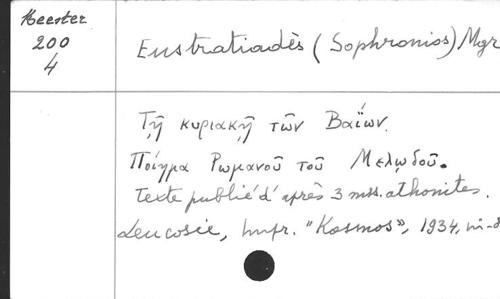 Meester
200
4
Eustratiadès (Sophronios) Mgr
Τῇ κυριακῇ τῶν Βαΐων.
Ποίημα Ρωμανοῦ τοῦ Μελῳδοῦ.
Texte publié d'après 3 mss. athonites.
Leucosie, Impr. "Kosmos", 1934, in-8